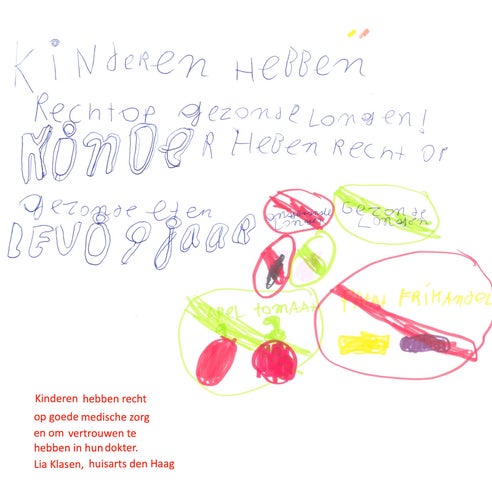 KiNdEREN HEBBEN
RECHTOP gEZONdE LONgEN!
KiNdER HEBEN RECHT OP
gEZONdE ETEN
LEVÖ 9 jAAR
ONgEZONdE
LONgEN
GEZONdE
LONgEN
APPEL tOMAAt
FRIKANdEL
Kinderen hebben recht
op goede medische zorg
en om vertrouwen te
hebben in hun dokter.
Lia Klasen, huisarts den Haag